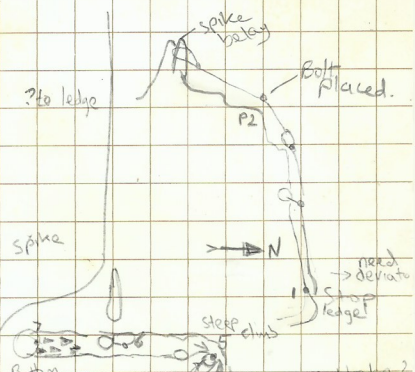 spike
belay
Bolt
placed.
? to ledge
P2
spike
N
need
→ deviate
Stop
ledge!
steep climb